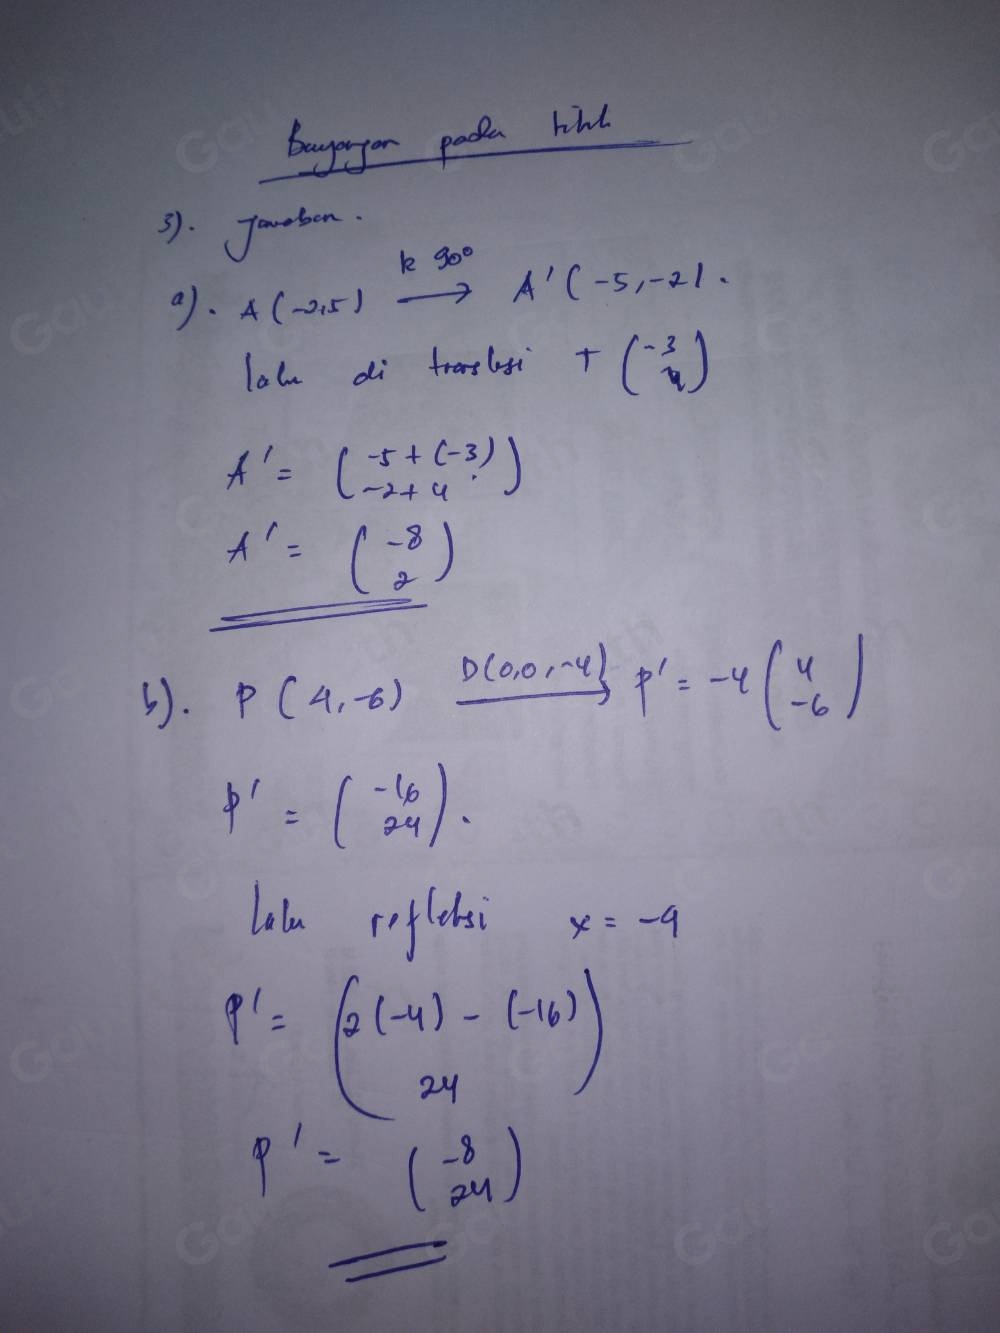 Bayangan pada titik
3). Jawaban.
a). A(-2,5) R 90° → A'(-5,-2).
lalu di translasi T (-3 4)
A' = (-5+(-3) -2+4)
A' = (-8 2)
b). P(4,-6) D(0,0,-4) → P' = -4 (4 -6)
P' = (-16 24).
lalu refleksi x = -4
P' = (2(-4) - (-16) 24)
P' = (-8 24)
Gauth